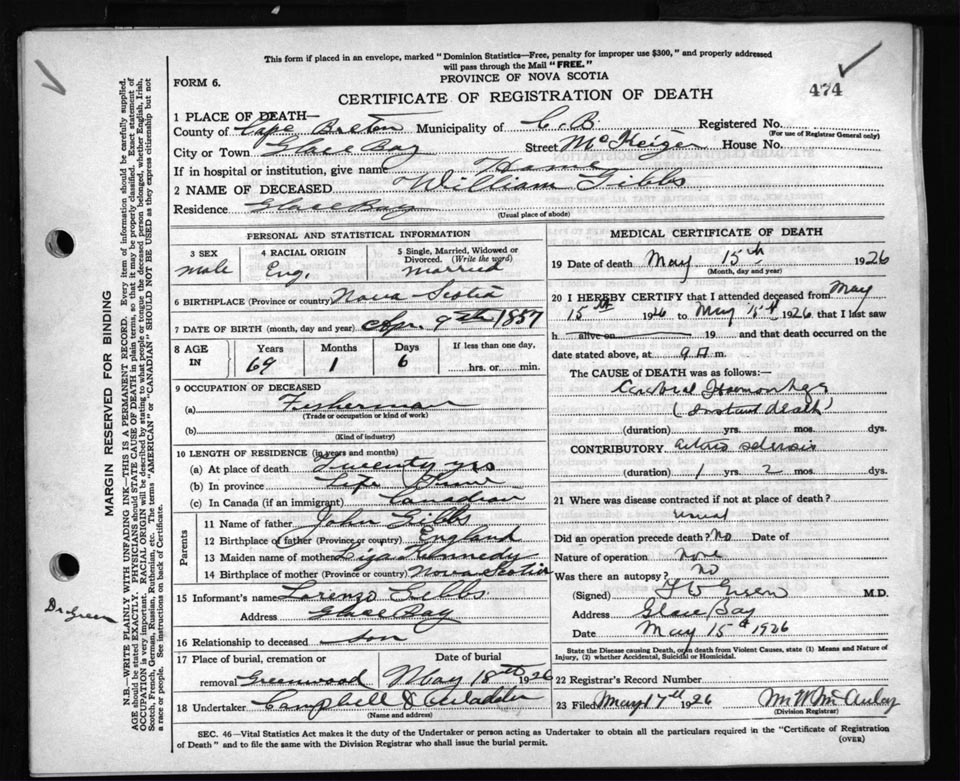 This form if placed in an envelope, marked "Dominion Statistics—Free, penalty for improper use $300," and properly addressed
will pass through the Mail "FREE."
PROVINCE OF NOVA SCOTIA
FORM 6.
474
CERTIFICATE OF REGISTRATION OF DEATH
1 PLACE OF DEATH—
County of Cape Breton Municipality of C.B. Registered No.
(For use of Registrar General only)
City or Town Glace Bay Street McKeigen House No.
If in hospital or institution, give name Home
2 NAME OF DECEASED William Gibbs
Residence Glace Bay
(Usual place of abode)
PERSONAL AND STATISTICAL INFORMATION
3 SEX
male
4 RACIAL ORIGIN
Eng.
5 Single, Married, Widowed or
Divorced. (Write the word)
married
6 BIRTHPLACE (Province or country) Nova Scotia
7 DATE OF BIRTH (month, day and year) Apr. 9th 1857
8 AGE IN
Years 69
Months 1
Days 6
If less than one day,
hrs. or min.
9 OCCUPATION OF DECEASED
(a) Fisherman
(Trade or occupation or kind of work)
(b)
(Kind of industry)
10 LENGTH OF RESIDENCE (in years and months)
(a) At place of death Twenty yrs
(b) In province Life Time
(c) In Canada (if an immigrant) Canadian
Parents
11 Name of father John Gibbs
12 Birthplace of father (Province or country) England
13 Maiden name of mother Liza Kennedy
14 Birthplace of mother (Province or country) Nova Scotia
15 Informant's name Lorenzo Gibbs
Address Glace Bay
16 Relationship to deceased Son
17 Place of burial, cremation or
removal Greenwood
Date of burial
May 18th 1926
18 Undertaker Campbell &
(Name and address)
MEDICAL CERTIFICATE OF DEATH
19 Date of death May 15th 1926
(Month, day and year)
20 I HEREBY CERTIFY that I attended deceased from May
15th 1926 to May 15th 1926 that I last saw
h alive on 19 and that death occurred on
date stated above, at 9 A. m.
The CAUSE of DEATH was as follows:—
Cerebral Haemorrhage
(Instant death)
(duration) yrs. mos. dys.
CONTRIBUTORY arterio sclerosis
(duration) 1 yrs. 2 mos. dys.
21 Where was disease contracted if not at place of death?
usual
Did an operation precede death? No Date of
Nature of operation None
Was there an autopsy? no
(Signed) Green M.D.
Address Glace Bay
Date May 15th 1926
State the Disease causing Death, or in death from Violent Causes, state (1) Means and Nature of
Injury, (2) whether Accidental, Suicidal or Homicidal.
22 Registrar's Record Number
23 Filed May 17th 1926 McAulay
(Division Registrar)
SEC. 46—Vital Statistics Act makes it the duty of the Undertaker or person acting as Undertaker to obtain all the particulars required in the "Certificate of Registration
of Death" and to file the same with the Division Registrar who shall issue the burial permit.
(OVER)
MARGIN RESERVED FOR BINDING
N.B.—WRITE PLAINLY WITH UNFADING INK—THIS IS A PERMANENT RECORD. Every item of information should be carefully supplied.
AGE should be stated EXACTLY. PHYSICIANS should STATE CAUSE OF DEATH in plain terms, so that it may be properly classified. Exact statement of
OCCUPATION is very important. RACIAL ORIGIN will be described by stating to what people or tongue the deceased person belonged, whether English, Irish,
Scotch, French, German, Russian, Ruthenian, etc. The terms "AMERICAN" or "CANADIAN" SHOULD NOT BE USED as they express citizenship but not
a race or people. See instructions on back of Certificate.
Dr Green